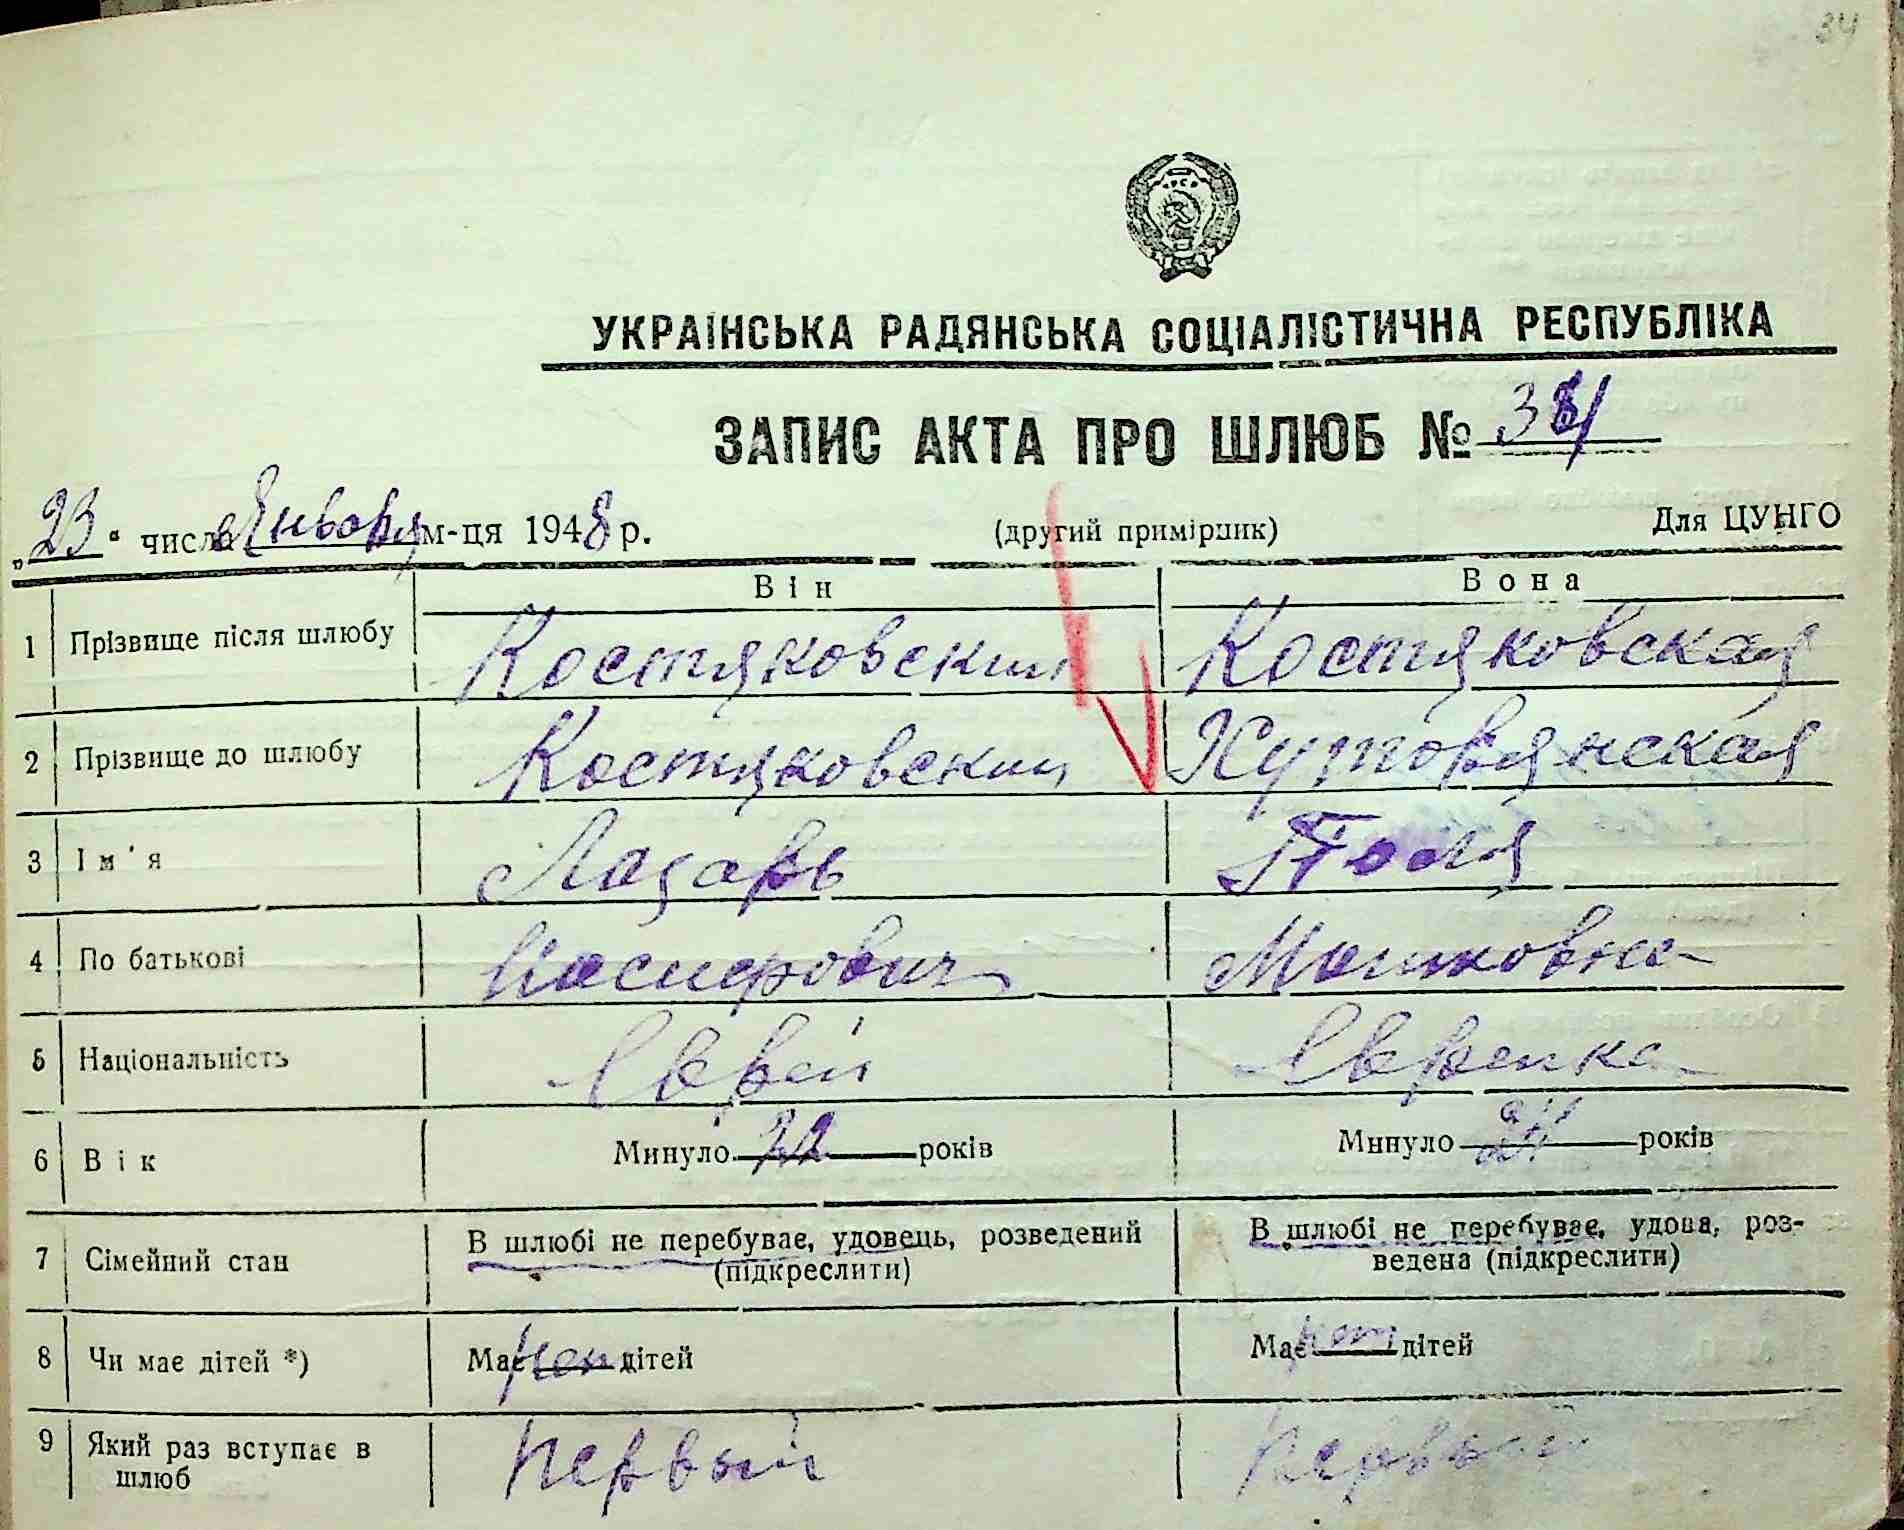 34
УКРАЇНСЬКА РАДЯНСЬКА СОЦІАЛІСТИЧНА РЕСПУБЛІКА
ЗАПИС АКТА ПРО ШЛЮБ №
„23“ числа Января м-ця 1948 р. (другий примірник) Для ЦУНГО
Він Вона
1 Прізвище після шлюбу Костяковский Костяковская
2 Прізвище до шлюбу Костяковский Хутовянская
3 Ім'я Лазарь Поля
4 По батькові Иосифович Мошковна
5 Національність Еврей Еврейка
6 Вік Минуло років Минуло 24 років
7 Сімейний стан В шлюбі не перебуває, удовець, розведений В шлюбі не перебуває, удова, роз-
(підкреслити) ведена (підкреслити)
8 Чи має дітей *) Має нет дітей Має нет дітей
9 Який раз вступає в Первый Первый
шлюб